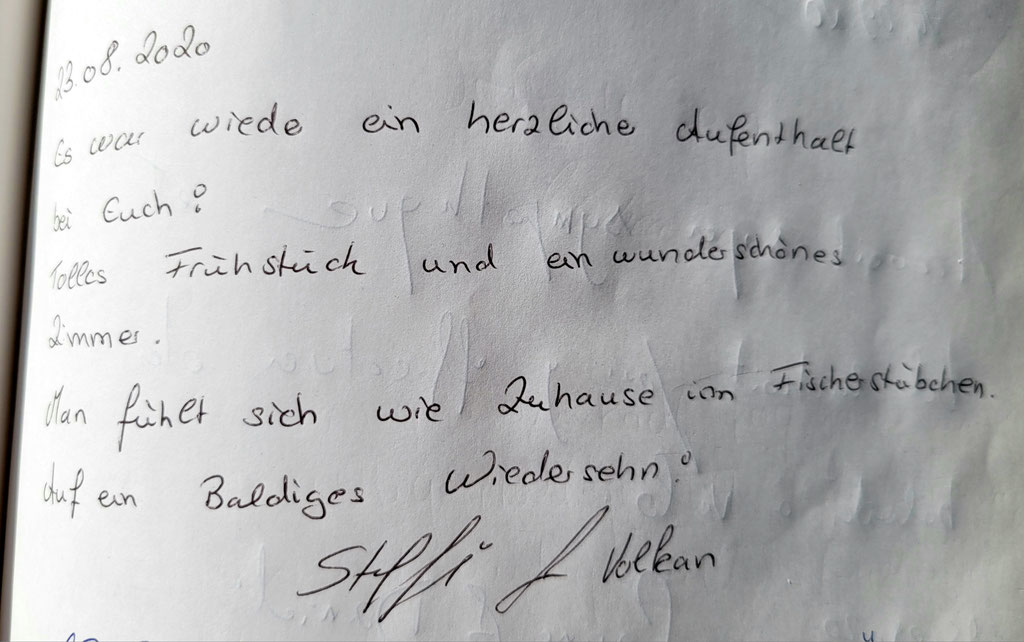 23.08.2020
Es war wiede ein herzliche Aufenthalt
bei Euch!
Tolles Frühstück und ein wunderschönes
Zimmer.
Man fühlt sich wie Zuhause im Fischerstübchen.
Auf ein Baldiges Wiedersehn!
Steffi & Volkan